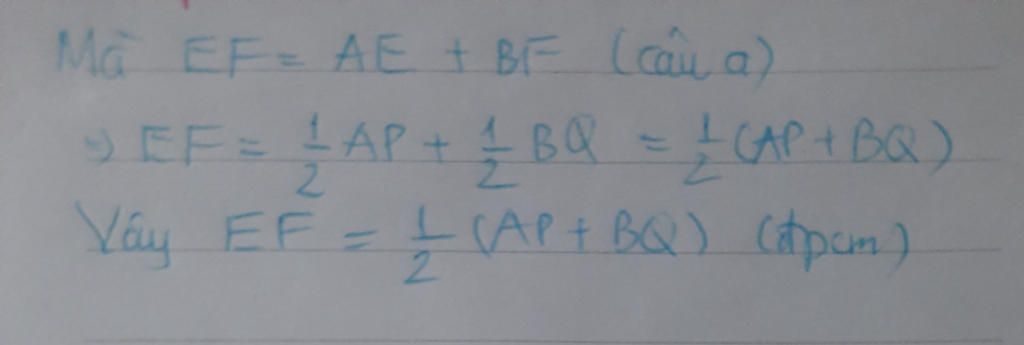 Mà EF = AE + BF (câu a)
=> EF = 1/2 AP + 1/2 BQ = 1/2 (AP + BQ)
Vậy EF = 1/2 (AP + BQ) (đpcm)